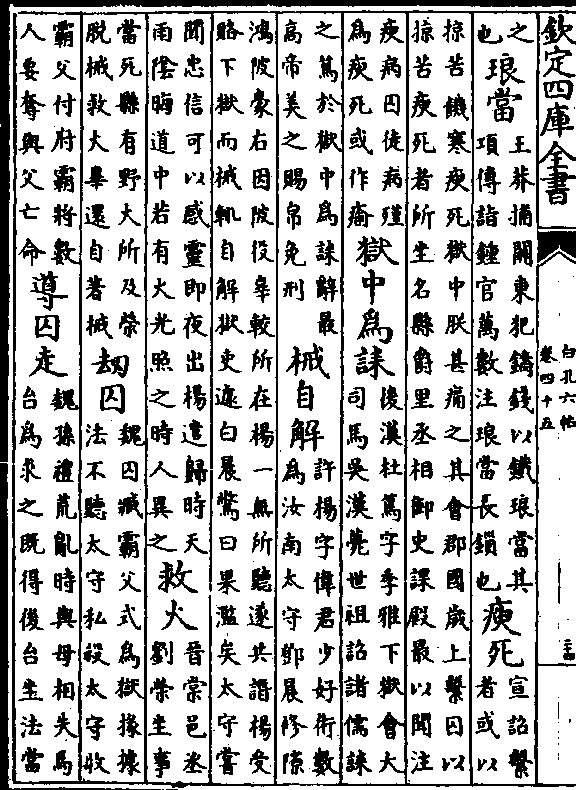 欽定四庫全書
白孔六帖
卷四十五
之
也
琅當
王莽捕關東犯鑄錢以鐵琅當其
項傳詣鍾官萬數注琅當長鎖也
瘐死
宣詔繫
者或以
掠苦饑寒瘐死獄中朕甚痛之其會郡國歲上繫囚以
掠苦瘐死者所坐名縣爵里丞相御史課殿最以聞注
瘐病囚徒病殣
為瘐死或作瘉
獄中為誄
後漢杜篤字季雅下獄會大
司馬吳漢薨世祖詔諸儒誄
之篤於獄中為誄辭最
高帝美之賜帛免刑
械自解
許楊字偉君少好術數
為汝南太守鄧晨修隙
鴻陂豪右因陂役辜較所在楊一無所聽遂共譖楊受
賂下獄而械輒自解獄吏遽白晨驚曰果濫矣太守嘗
聞忠信可以感靈即夜出楊遣歸時天
雨陰晦道中若有火光照之時人異之
救火
晉棠邑丞
劉榮坐事
當死縣有野火所及榮
脫械救火畢還自著械
劫囚
魏囚臧霸父式為獄掾據
法不聽太守私殺太守收
霸父付府霸將數
人要奪與父亡命
導囚走
魏孫禮荒亂時與母相失馬
台為求之既得後台坐法當